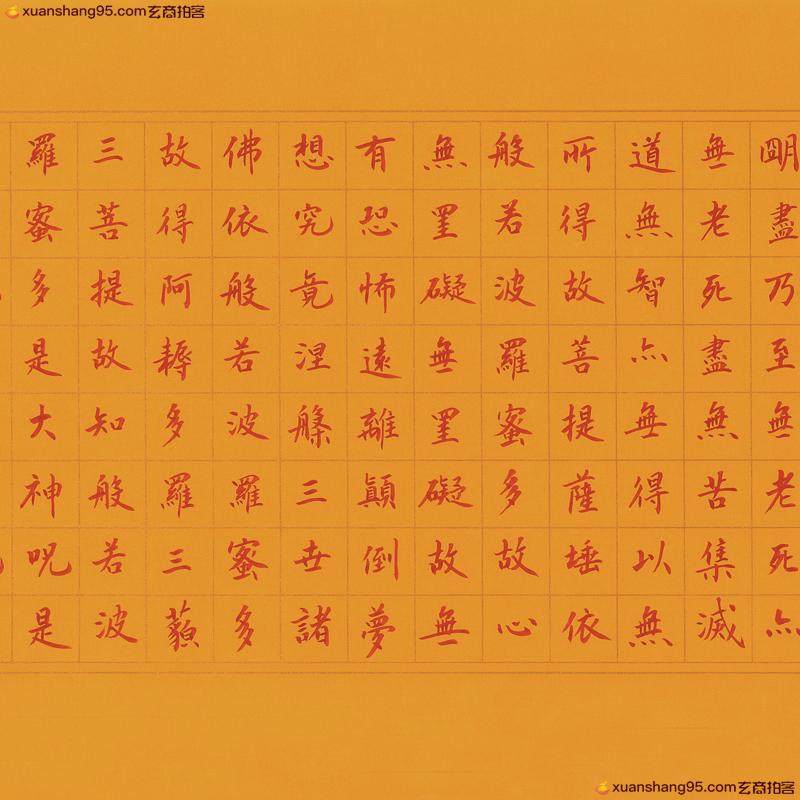 xuanshang95.com玄商拍客
明盡乃至無老死亦
無老死盡無苦集滅
道無智亦無得以無
所得故菩提薩埵依
般若波羅蜜多故心
無罣礙無罣礙故無
有恐怖遠離顛倒夢
想究竟涅槃三世諸
佛依般若波羅蜜多
故得阿耨多羅三藐
三菩提故知般若波
羅蜜多是大神呪是
xuanshang95.com玄商拍客